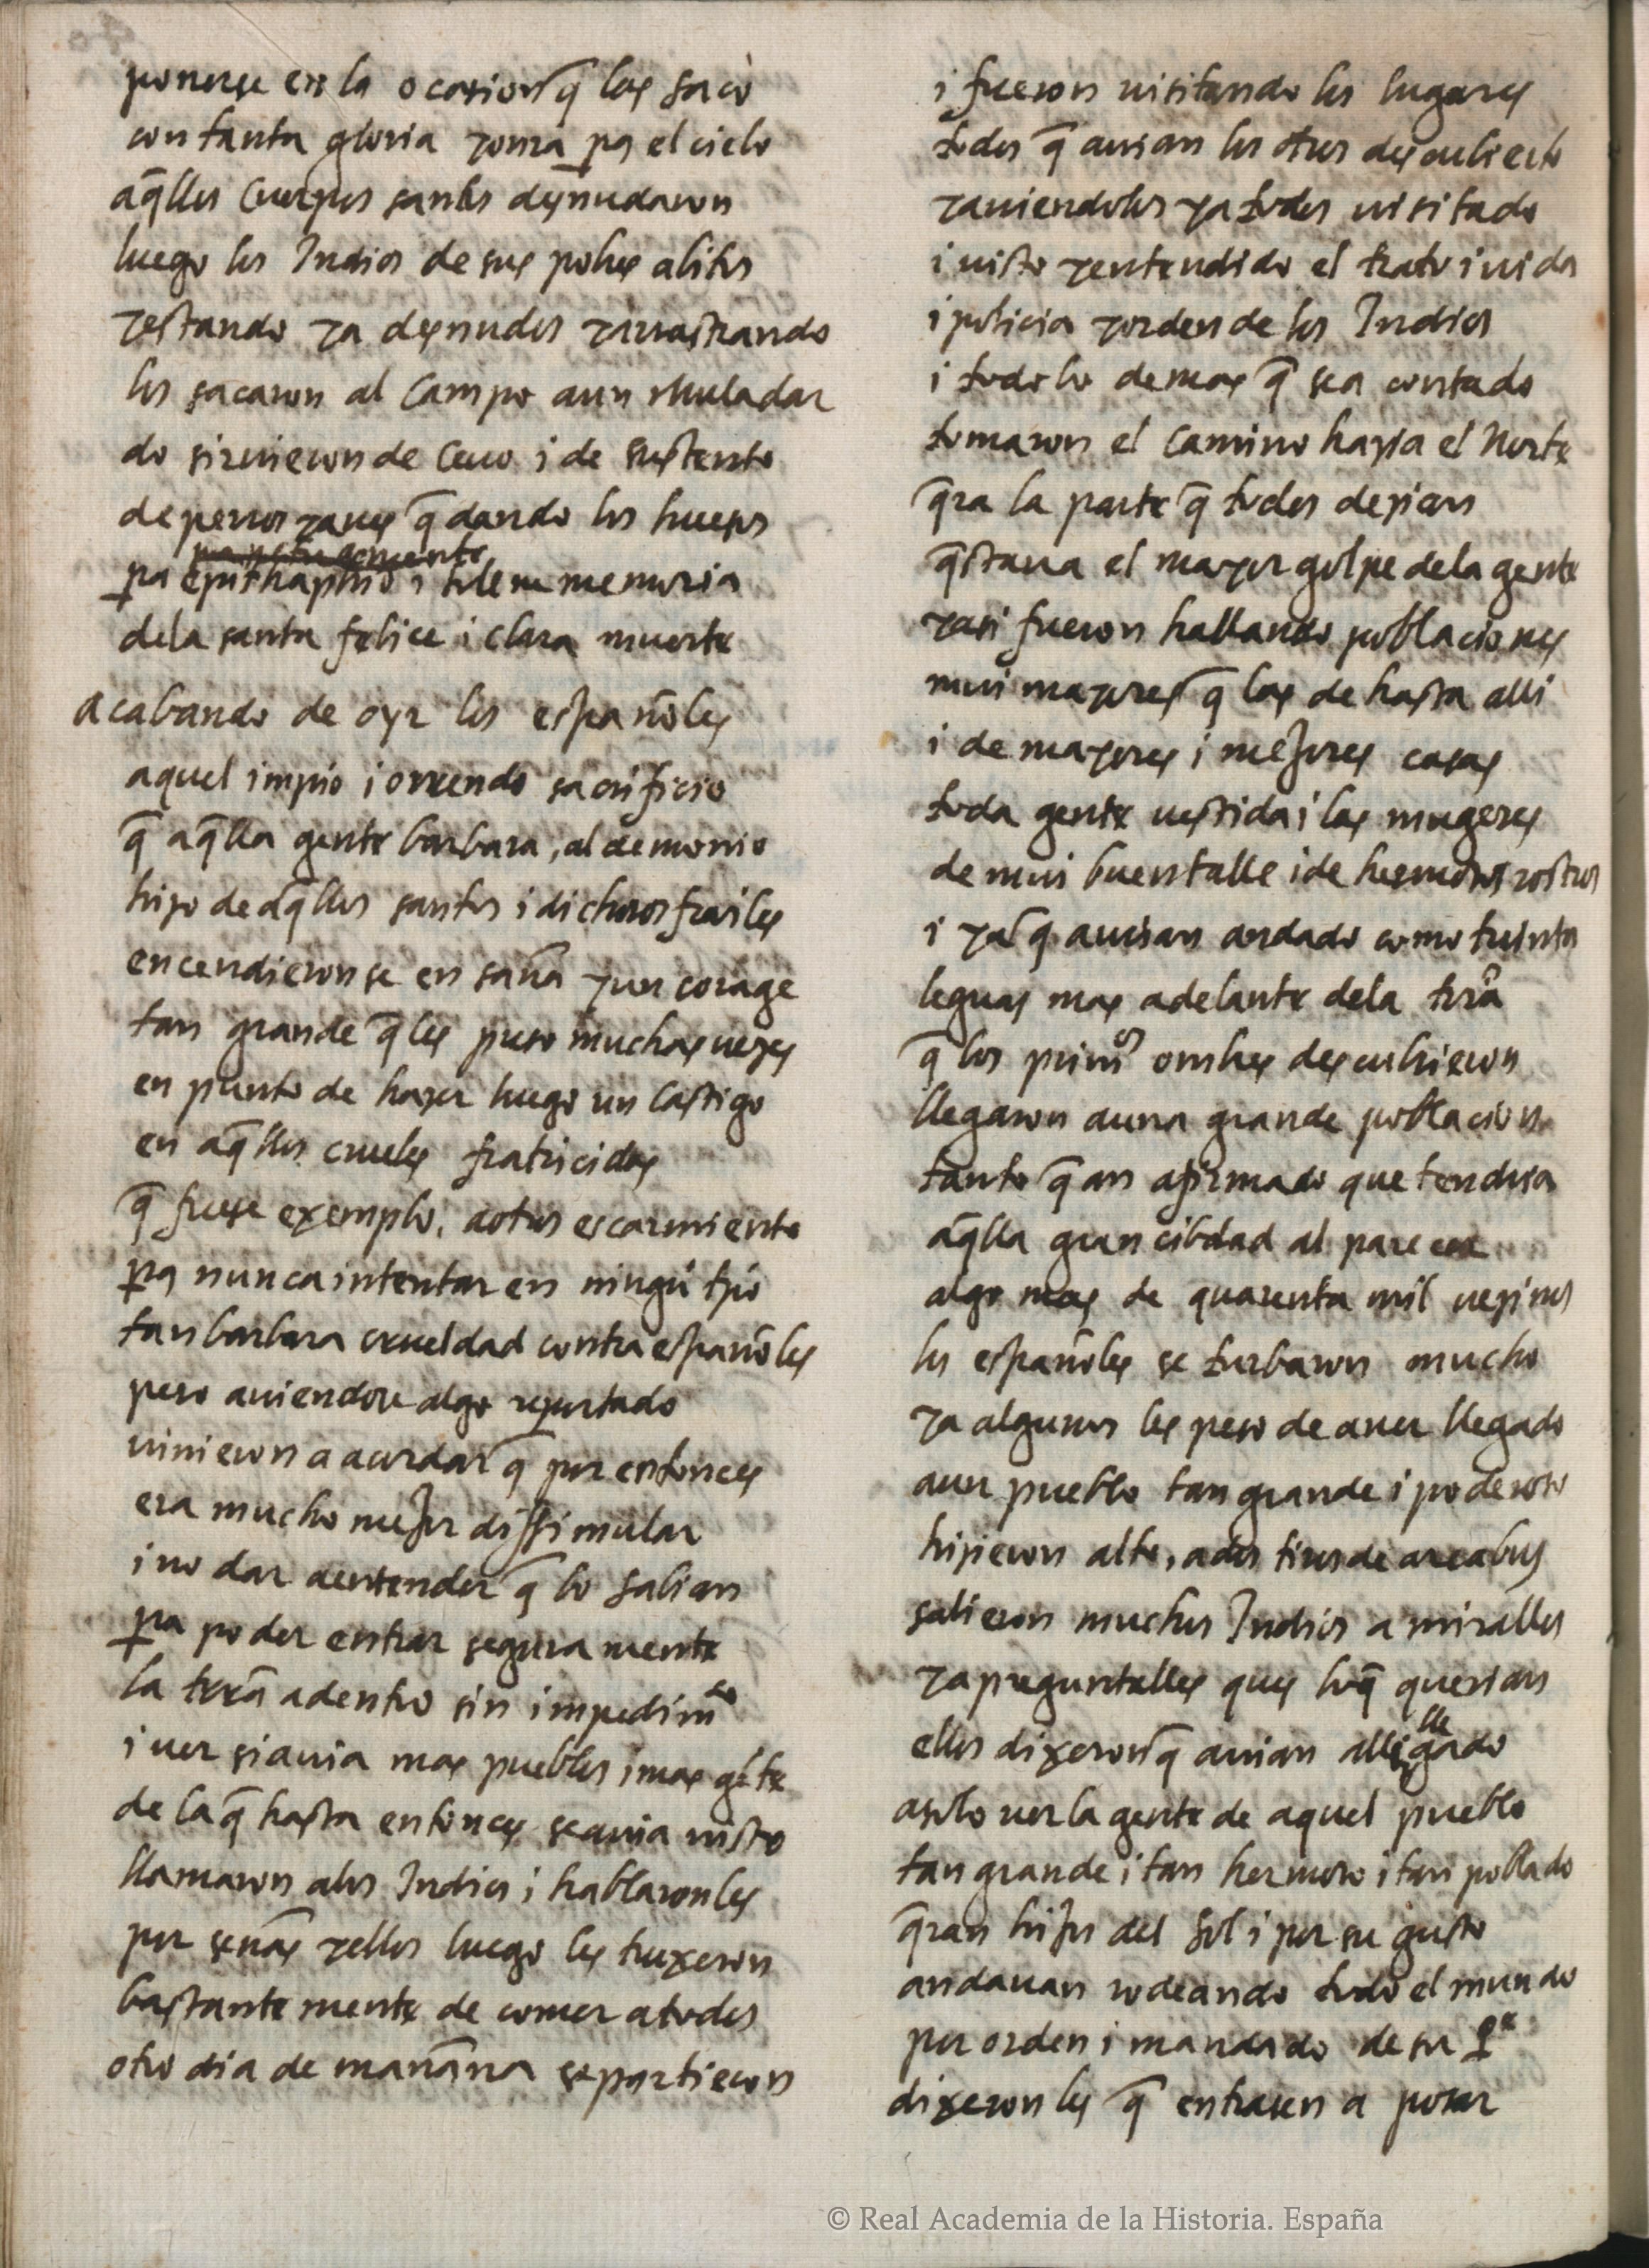 ponerse en la ocasion q̃ los saco
con tanta gloria yonra pa el cielo
aq̃llos Cuerpos santos desnudaron
luego los Indios de sus pobres abitos
yestando ya desnudos yarrastrando
los sacaron al Campo aun muladar
do sirvieron de Cevo i de sustento
de perros yaves q̃dando los huesos
pa epithaphio i memoria
dela santa felice i clara muerte
acabando de oyr los españoles
aquel impio i orrendo sacrificio
q̃ aq̃lla gente barbara, al demonio
hizo de aq̃llos santos i dichosos frailes
encendieronse en saña yun corage
tan grande q̃ les puso muchas vezes
en punto de hazer luego un Castigo
en aq̃llos crueles fratricidas
q̃ fuese exemplo, aotros escarmiento
pa nunca intentar en ningũ tpõ
tan barbara crueldad contra españoles
pero aviendose algo reportado
vinieron a acordar q̃ por entonces
era mucho mejor dissimular
i no dar aentender q̃ lo sabian
pa poder entrar segura mente
la trrã adentro sin impedimto
i ver si avia mas pueblos i mas gẽte
de la q̃ hasta entonces seavia visto
llamaron alos Indios i hablaronles
por señas yellos luego les truxeron
bastante mente de comer atodos
otro dia de mañana separtieron
i fueron visitando los lugares
todos q̃ avian los otros descubierto
yaviendolos ya todos visitado
i visto yentendido el trato i vida
i policia yorden de los Indios
i todo lo demas q̃ sea contado
tomaron el Camino hazia el Norte
q̃ra la parte q̃ todos dezian
q̃stava el mayor golpe dela gente
yasi fueron hallando poblaciones
mui mayores q̃ las de hasta alli
i de mayores i mejores casas
toda gente vestida i las mugeres
de mui buen talle i de hermosos rostros
i ya q̃ avian andado como treinta
leguas mas adelante dela trrã
q̃ los primos onbres descubrieron
llegaron auna grande poblacion
tanto q̃ an afirmado que tendria
aq̃lla gran cibdad al parecer
algo mas de quarenta mil vezinos
los españoles se turbaron mucho
ya algunos les peso de aver llegado
aun pueblo tan grande i poderoso
hizieron alto, ados tiros de arcabuz
salieron muchos Indios a mirallos
yapreguntalles ques loq̃ querian
ellos dixeron q̃ avian allegado
asolo ver la gente de aquel pueblo
tan grande i tan hermoso i tan poblado
q̃ran hijos del Sol i por su gusto
andavan rodeando todo el mundo
por orden i mandado de su Pe
dixeronles q̃ entrasen a posar
© Real Academia de la Historia. España